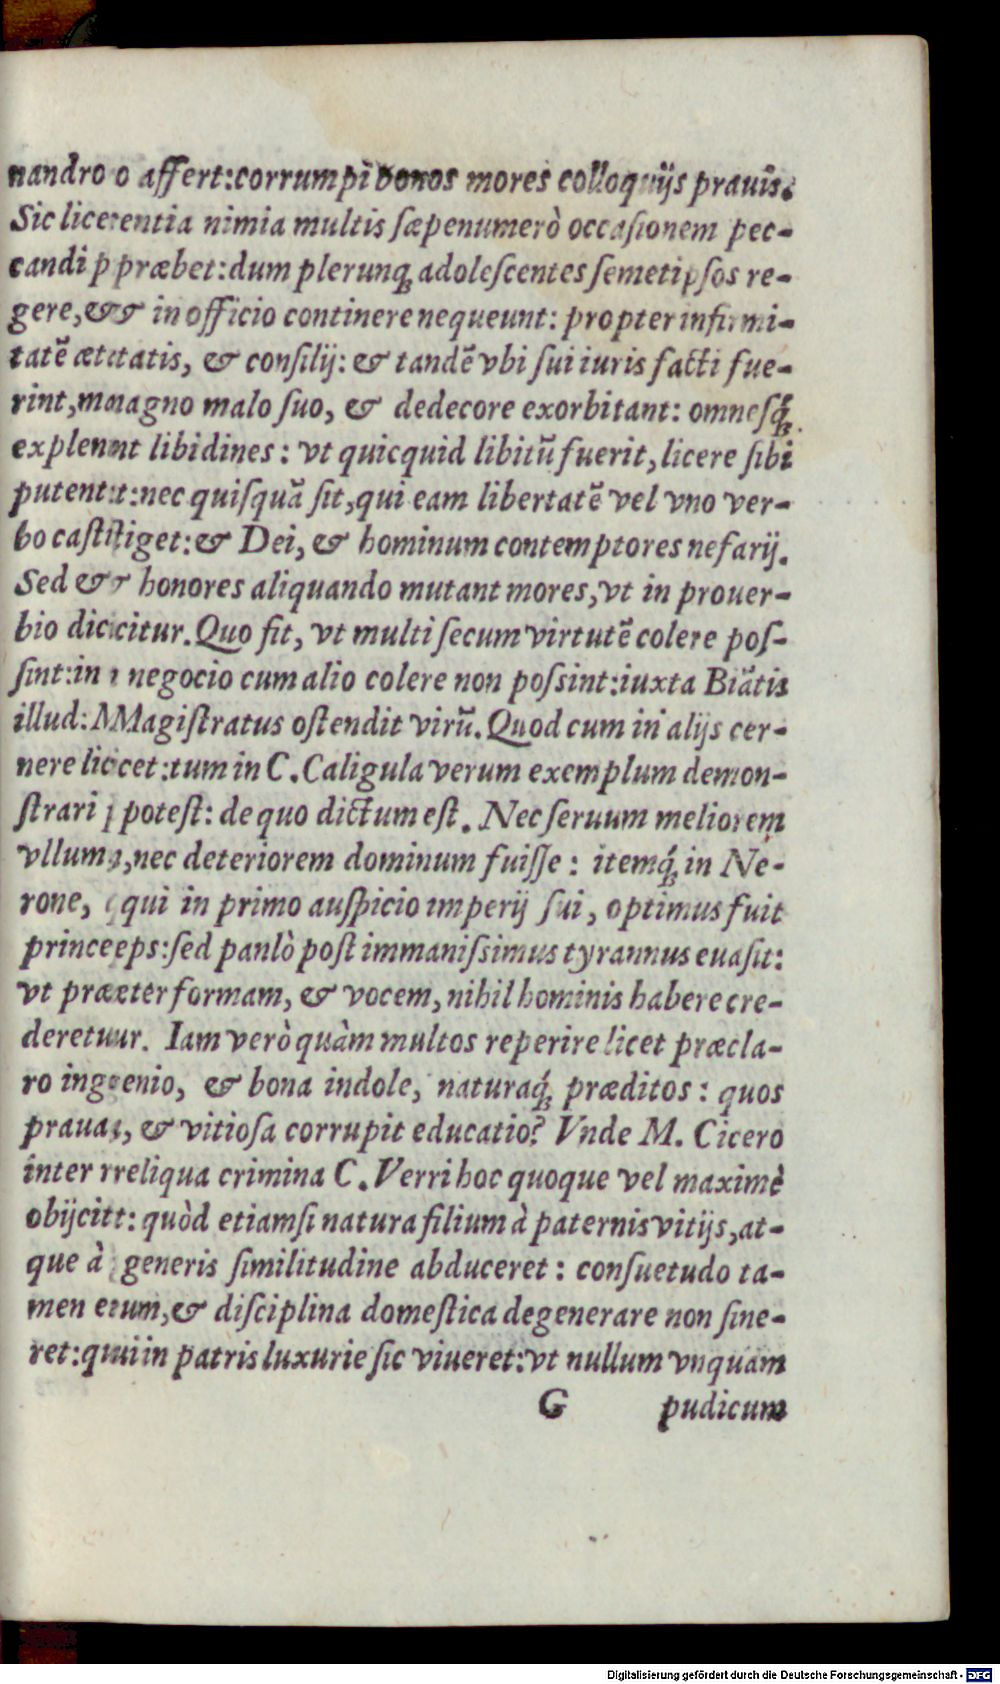 nandro affert: corrumpi bonos mores colloquijs prauis.
Sic licentia nimia multis sæpenumerò occasionem pec-
candi præbet: dum plerunq́; adolescentes semetipsos re-
gere, & in officio continere nequeunt: propter infirmi-
tatē ætatis, & consilij: & tandē vbi sui iuris facti fue-
rint, magno malo suo, & dedecore exorbitant: omnesq́;
explent libidines: vt quicquid libitū fuerit, licere sibi
putent: nec quisquā sit, qui eam libertatē vel vno ver-
bo castiget: & Dei, & hominum contemptores nefarij.
Sed & honores aliquando mutant mores, vt in prouer-
bio dicitur. Quo fit, vt multi secum virtutē colere pos-
sint: in negocio cum alio colere non possint: iuxta Biātis
illud: Magistratus ostendit virū. Quod cum in alijs cer-
nere licet: tum in C. Caligula verum exemplum demon-
strari potest: de quo dictum est. Nec seruum meliorem
vllum, nec deteriorem dominum fuisse: itemq́; in Ne-
rone, qui in primo auspicio imperij sui, optimus fuit
princeps: sed panlò post immanissimus tyrannus euasit:
vt præter formam, & vocem, nihil hominis habere cre-
deretur. Iam verò quàm multos reperire licet præcla-
ro ingenio, & bona indole, naturaq́; præditos: quos
praua, & vitiosa corrupit educatio? Vnde M. Cicero
inter reliqua crimina C. Verri hoc quoque vel maximè
obijcit: quòd etiamsi natura filium à paternis vitijs, at-
que à generis similitudine abduceret: consuetudo ta-
men eum, & disciplina domestica degenerare non sine-
ret: qui in patris luxurie sic viueret: vt nullum vnquam
G pudicum
Digitalisierung gefördert durch die Deutsche Forschungsgemeinschaft - DFG